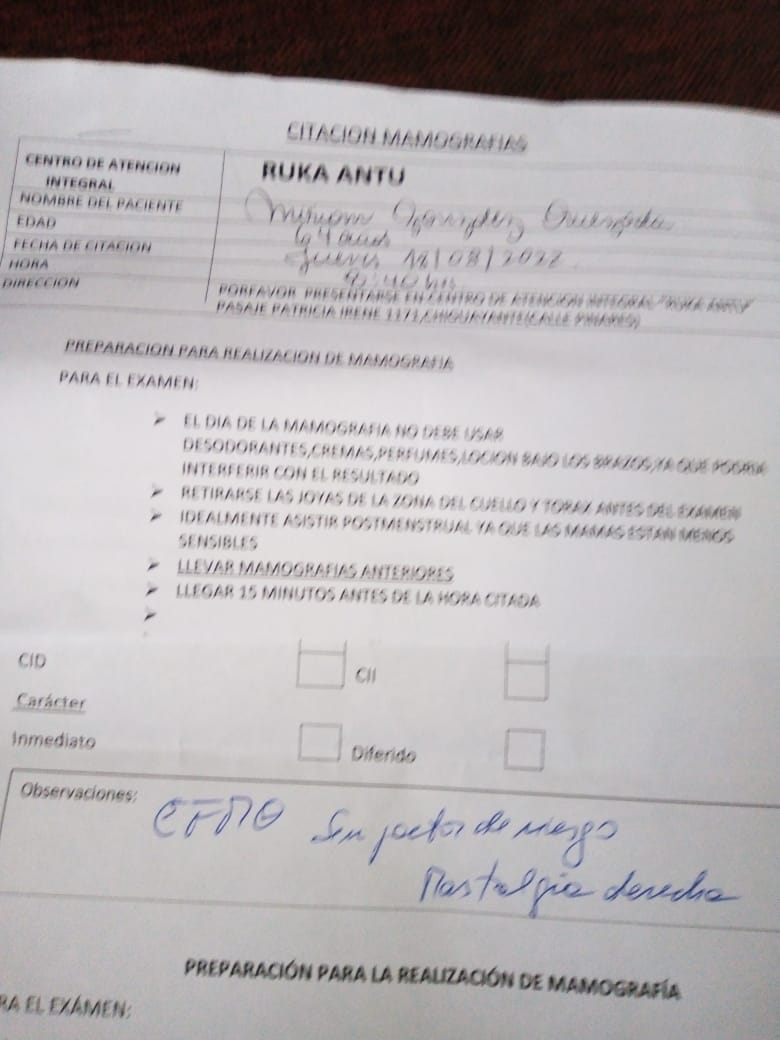 CITACION MAMOGRAFIAS
CENTRO DE ATENCION INTEGRAL
RUKA ANTU
NOMBRE DEL PACIENTE
Miriam González Quezada
EDAD
64 años
FECHA DE CITACION
Jueves /08/2022
HORA
:40 hrs
DIRECCION
PORFAVOR PRESENTARSE EN CENTRO DE ATENCION INTEGRAL "RUKA ANTU"
PASAJE PATRICIA IRENE 1171,CHIGUAYANTE(CALLE PINARES)
PREPARACION PARA REALIZACION DE MAMOGRAFIA
PARA EL EXAMEN:
➤ EL DIA DE LA MAMOGRAFIA NO DEBE USAR
DESODORANTES,CREMAS,PERFUMES,LOCION BAJO LOS BRAZOS,YA QUE PODRIA
INTERFERIR CON EL RESULTADO
➤ RETIRARSE LAS JOYAS DE LA ZONA DEL CUELLO Y TORAX ANTES DEL EXAMEN
➤ IDEALMENTE ASISTIR POSTMENSTRUAL YA QUE LAS MAMAS ESTAN MENOS
SENSIBLES
➤ LLEVAR MAMOGRAFIAS ANTERIORES
➤ LLEGAR 15 MINUTOS ANTES DE LA HORA CITADA
➤
CID CII
Carácter
Inmediato Diferido
Observaciones:
Sin factor de riesgo
Mastalgia derecha
PREPARACIÓN PARA LA REALIZACIÓN DE MAMOGRAFÍA
RA EL EXÁMEN: